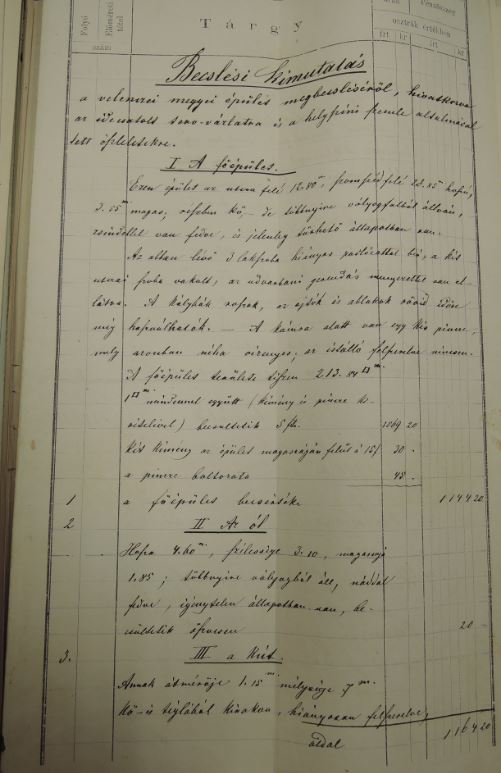 Folyó szám
Előméreti tétel
Tárgy
Pénzösszeg
osztrák értékben
frt kr frt kr
Becslési kimutatás
a velenczei megyei épület megbecsléséről, hivatkozva
az idecsatolt terv-vázlatra és a helyszini szemle alkalmával
tett észleletekre.
I A főépület.
Ezen épület az utcza felé 12.80 m, szomszéd felé 23.85 hosszu,
3.55 m magas, részben kő- de többnyire vályogfalból állván,
zsindellel van fedve, és jelenleg tűrhető állapotban van.
Az abban lévő 3 lakszoba hiányos padlózattal bir, a két
utczai szoba vakolt, az udvarbani gerendás menyezettel van el-
látva. A kályhák rosszak, az ajtók és ablakok rövid időre
még használhatók. — A kamra alatt van egy kis pincze,
mely azonban néha vizenyos, az istálló felszerelve nincsen.
A főépület területe tészen 213.84 □m.
1 □m mindennel együtt (kémény és pincze ki-
vételével) becsültetik 5 ft. 1069 20
két kémény az épület magasságján felül á 15 f 30 -
a pincze boltozata 45 -
1 a főépület becsértéke 1144 20
2 II Az ól
Hossza 4.60 m, szélessége 3.10, magassága
1.85; többnyire vályogból áll, náddal
fedve, igénytelen állapotban van, be-
csültetik összesen 20 -
3. III a Kút.
Annak átmérője 1.15 m mélysége 7 m.
Kő- és téglából kirakva, hiányosan felszerelve,
oldal 1164 20